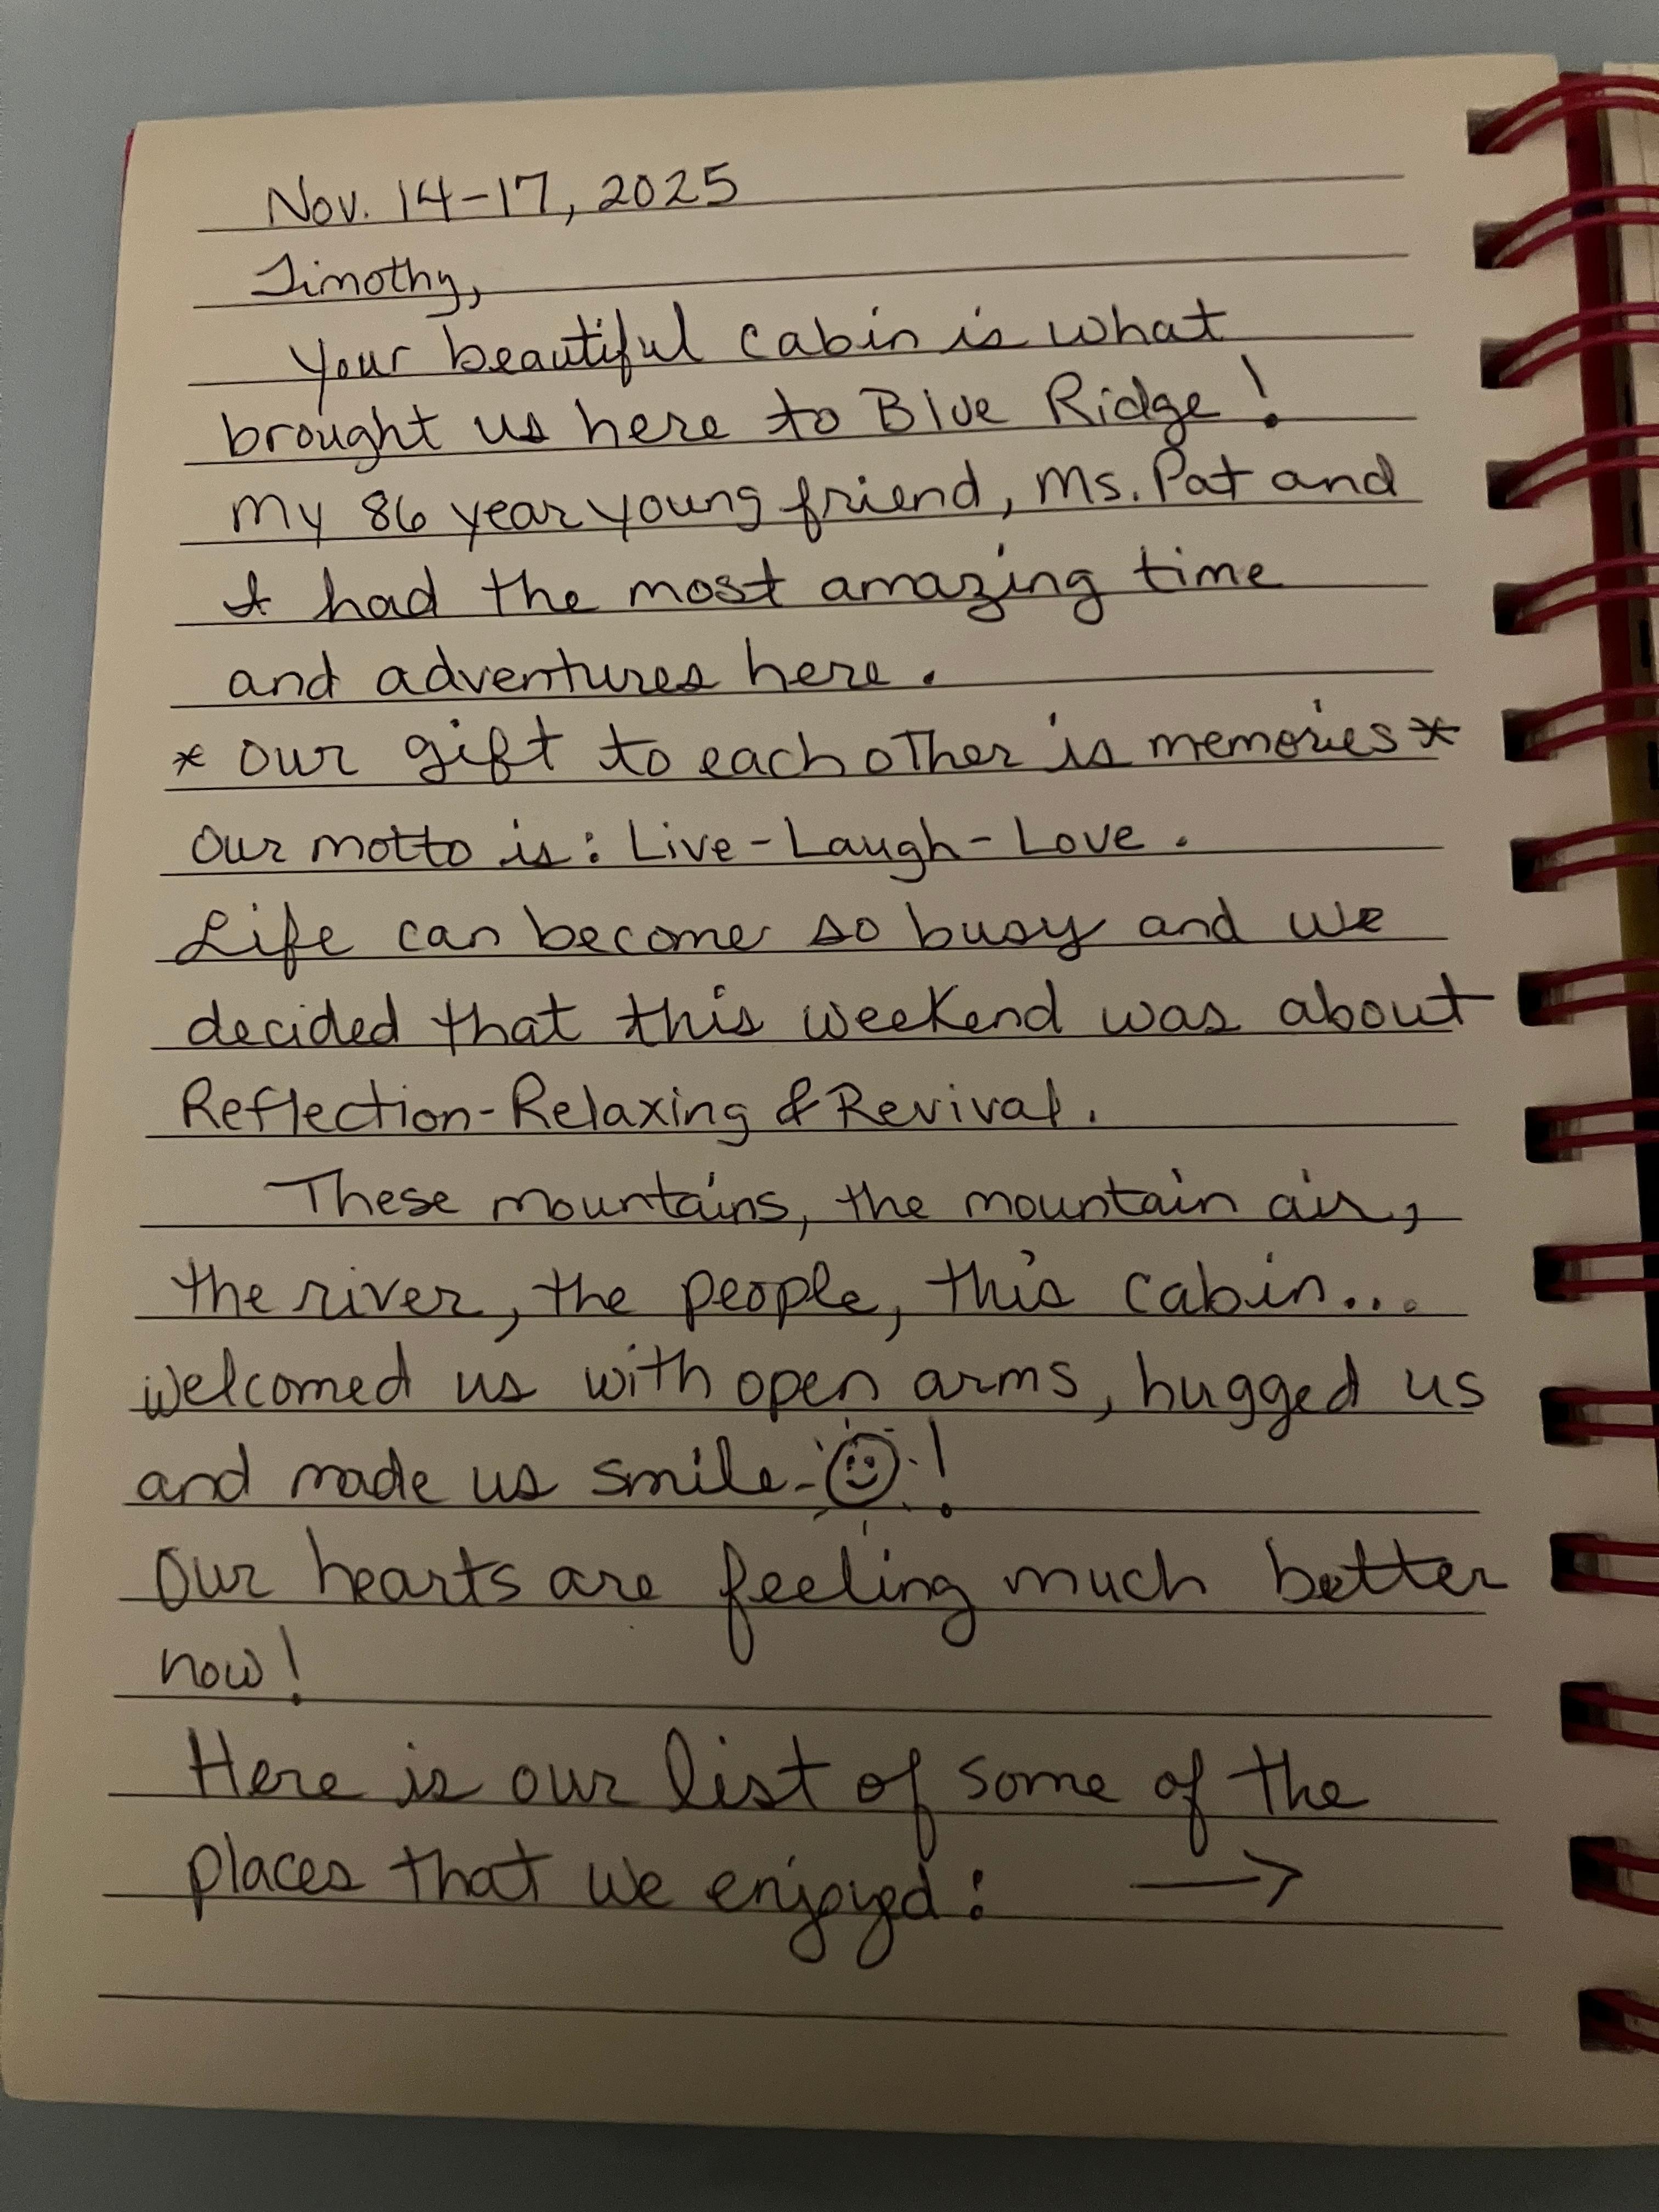 Nov. 14-17, 2025
Timothy,
Your beautiful cabin is what
brought us here to Blue Ridge!
My 86 year young friend, Ms. Pat and
I had the most amazing time
and adventures here.
* Our gift to each other is memories *
Our motto is: Live-Laugh-Love.
Life can become so busy and we
decided that this weekend was about
Reflection-Relaxing & Revival.
These mountains, the mountain air,
the river, the people, this cabin...
welcomed us with open arms, hugged us
and made us smile-☺!
Our hearts are feeling much better
now!
Here is our list of some of the
places that we enjoyed: →